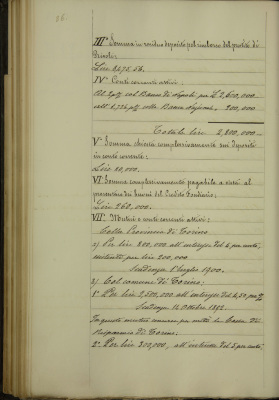 III° Somma in residuo deposito pel
Lire 8,475.56.
IV° Conti correnti attivi:
Al 2 p% col Banco di Napoli per L. 2,600,000
all' colla Banca Nazionale, 200,000
Totale lire 2,800,000
V° Somma chiesta complessivamente sui depositi
in conto corrente:
Lire 80,000.
VI° Somma complessivamente pagabile a vista al
dei buoni del Credito Fondiario:
Lire 260,000.
VII° Mutui e conti correnti attivi:
Colla Provincia di Torino
a) Per lire 800,000 all'interesse del 4 per cento,
per lire 200,000
Scadenza 1° luglio 1900.
b) Col comune di Torino:
1° Per lire 2,500,000 all'interesse del 4,50 per %
Scadenza 12 Ottobre 1892.
In questo mutuo concorre per metà la Cassa di
Risparmio di Torino.
2° Per lire 300,000, all'interesse del 5 per cento,